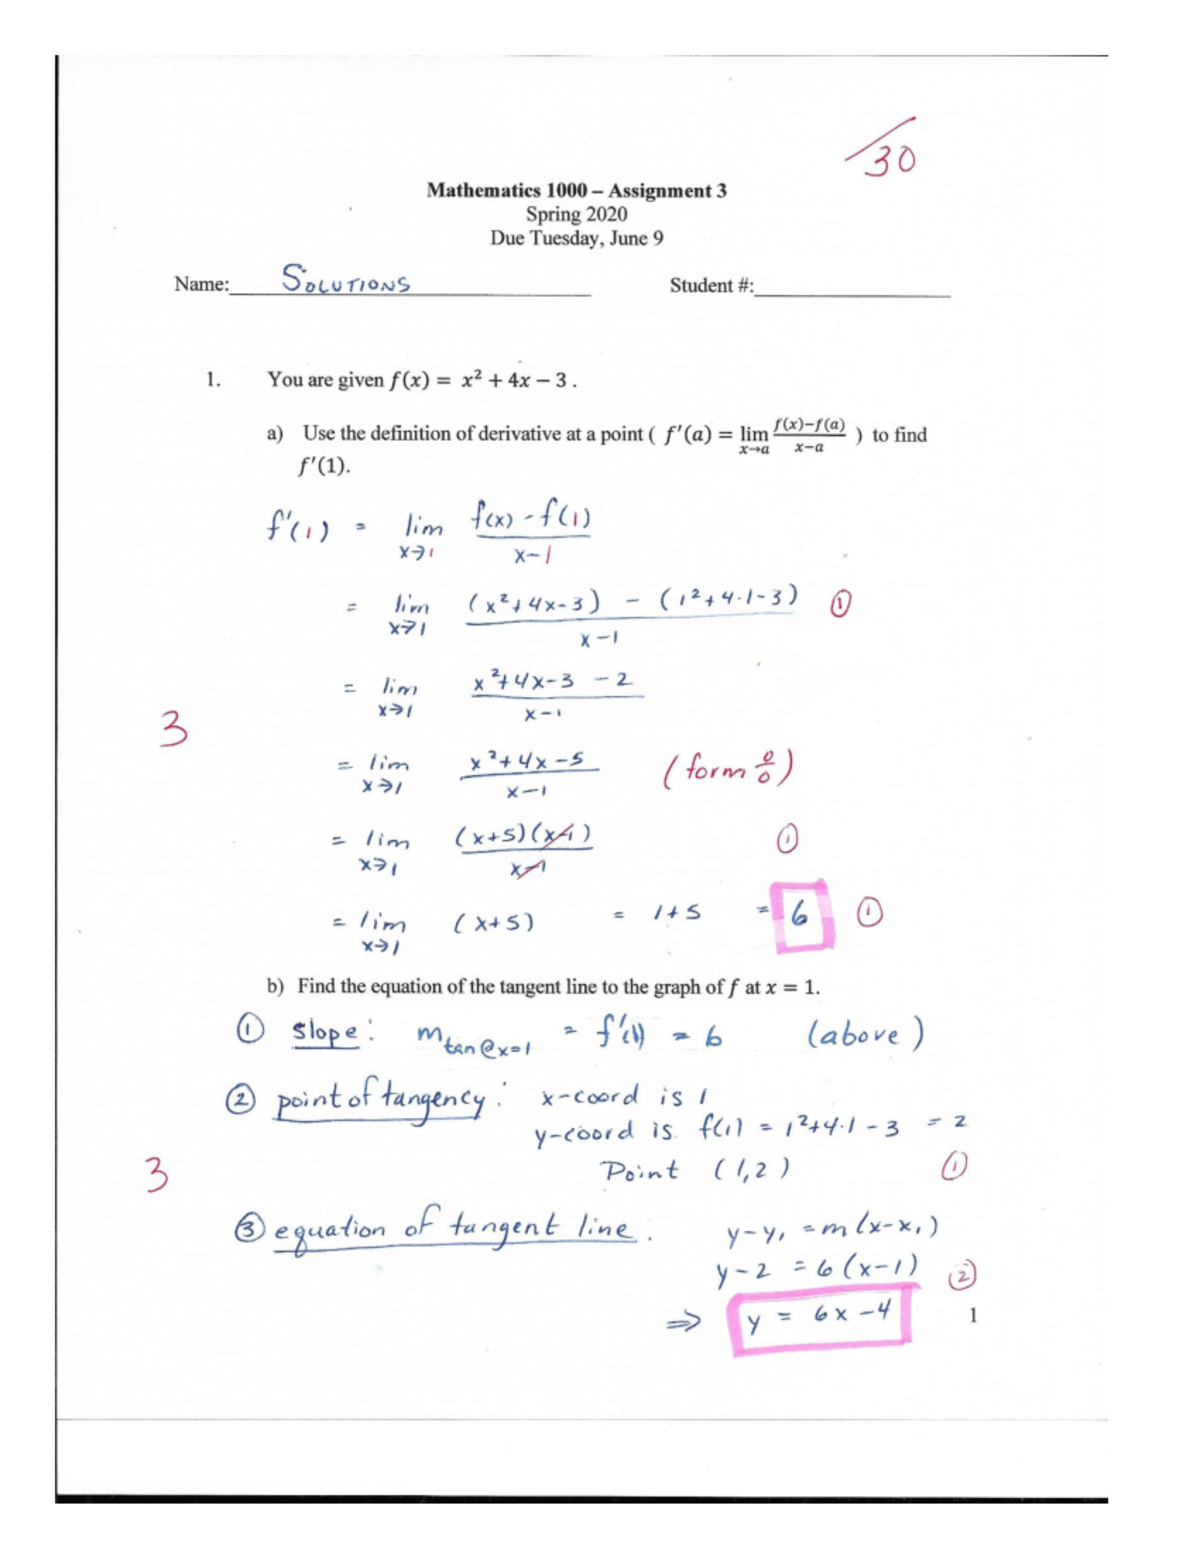 /30
Mathematics 1000 – Assignment 3
Spring 2020
Due Tuesday, June 9
Name: SOLUTIONS Student #:
1. You are given f(x) = x² + 4x − 3 .
a) Use the definition of derivative at a point ( f′(a) = lim x→a (f(x)−f(a))/(x−a) ) to find
f′(1).
f'(1) = lim x→1 (f(x) - f(1))/(x-1)
= lim x→1 ((x²+4x-3) - (1²+4·1-3))/(x-1) ①
= lim x→1 (x²+4x-3 -2)/(x-1)
3
= lim x→1 (x²+4x-5)/(x-1) (form 0/0)
= lim x→1 ((x+5)(x-1))/(x-1) ①
= lim x→1 (x+5) = 1+5 = 6 ①
b) Find the equation of the tangent line to the graph of f at x = 1.
① slope: m tan@x=1 = f'(1) = 6 (above)
② point of tangency: x-coord is 1
y-coord is f(1) = 1²+4·1-3 = 2
3 Point (1,2) ①
③ equation of tangent line: y-y₁ = m(x-x₁)
y-2 = 6(x-1) ②
⇒ y = 6x-4
1